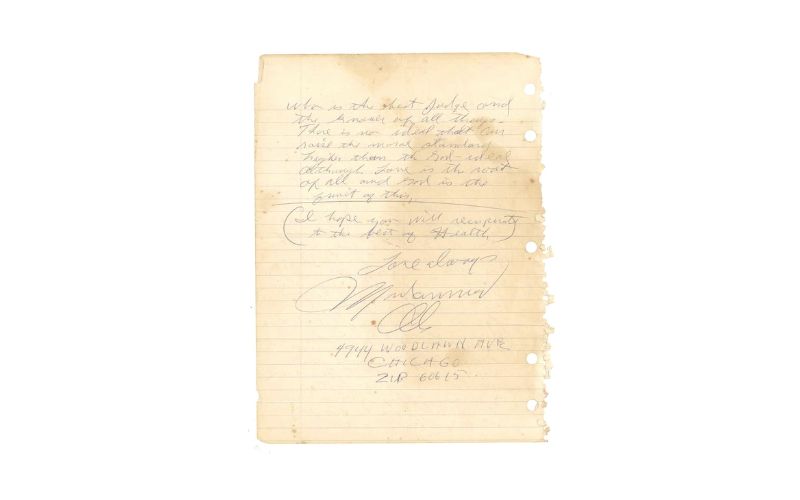 who is the best Judge and
the knower of all things.
There is no ideal that can
raise the moral standard
higher than the God-ideal
although Love is the root
of all and God is the
fruit of this.
(I hope you will recuperate
to the best of Health)
Love always
Muhammad
Ali
4944 WOODLAWN AVE
CHICAGO
ZIP 60615